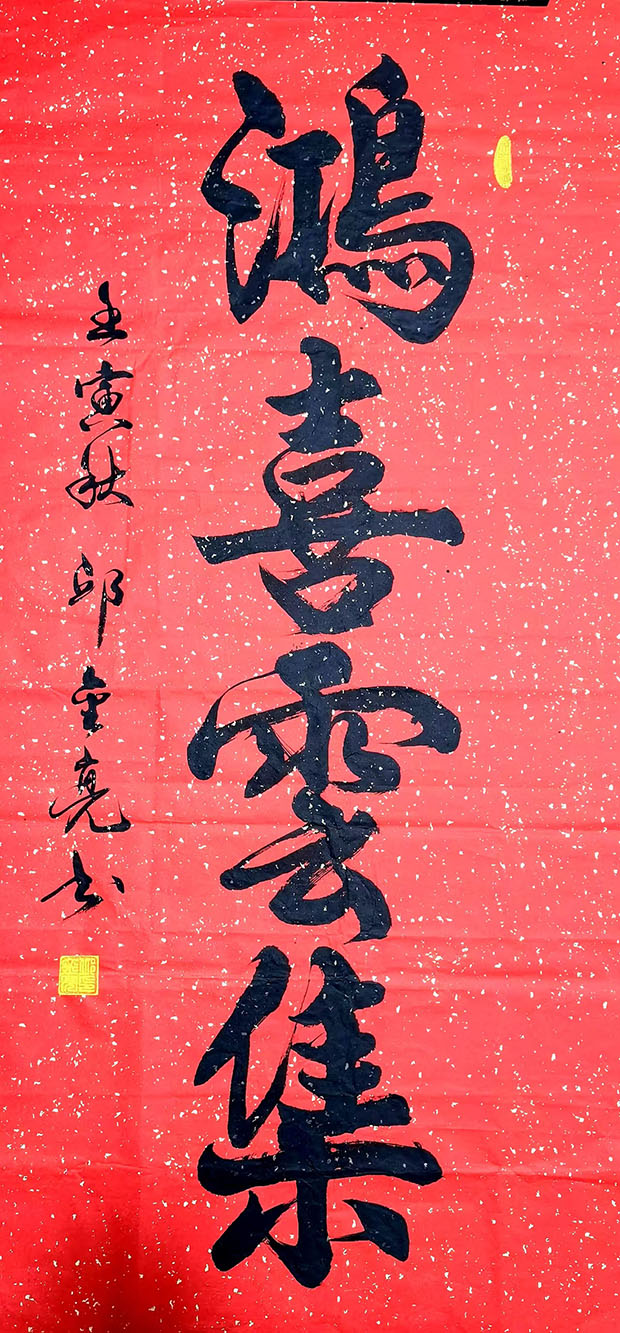 鴻喜雲集
壬寅秋 邱金亮书